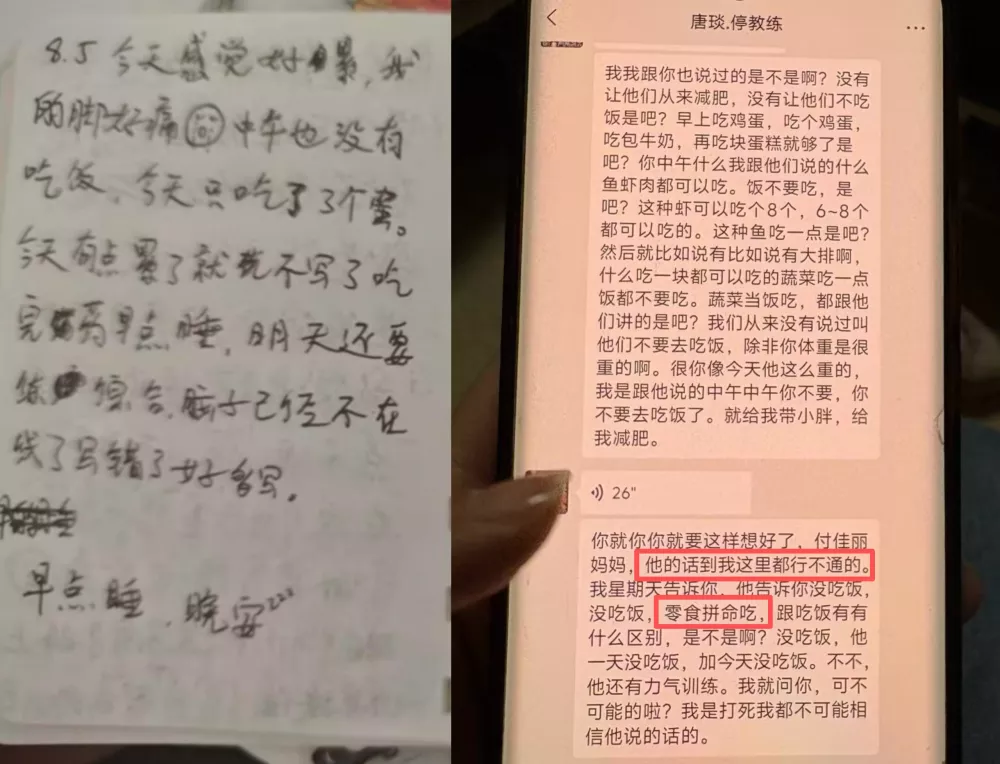 8.5 今天感觉好累，我
的脚好痛 中午也没有
吃饭、今天只吃了3个蛋。
今天有点累了就先不写了吃
完药早点睡，明天还要
练综合，脑子已经不在
线了写错了好多写。
早点睡，晚安zzz
唐琰.停教练
我我跟你也说过的是不是啊？没有
让他们从来减肥，没有让他们不吃
饭是吧？早上吃鸡蛋，吃个鸡蛋，
吃包牛奶，再吃块蛋糕就够了是
吧？你中午什么我跟他们说的什么
鱼虾肉都可以吃。饭不要吃，是
吧？这种虾可以吃个8个，6~8个
都可以吃的。这种鱼吃一点是吧？
然后就比如说有比如说有大排啊，
什么吃一块都可以吃的蔬菜吃一点
饭都不要吃。蔬菜当饭吃，都跟他
们讲的是吧？我们从来没有说过叫
他们不要去吃饭，除非你体重是很
重的啊。很你像今天他这么重的，
我是跟他说的中午中午你不要，你
不要去吃饭了。就给我带小胖，给
我减肥。
26"
你就你你就要这样想好了，付佳丽
妈妈，他的话到我这里都行不通的。
我星期天告诉你，他告诉你没吃饭，
没吃饭，零食拼命吃，跟吃饭有有
什么区别，是不是啊？没吃饭，他
一天没吃饭，加今天没吃饭。不不，
他还有力气训练。我就问你，可不
可能的啦？我是打死我都不可能相
信他说的话的。